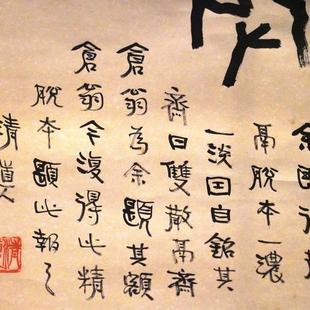 余
鬲脫本一濃
一淡因自銘其
齋曰雙散鬲齋
倉翁為余題其額
倉翁今復得此精
脫本題此報之
清道人